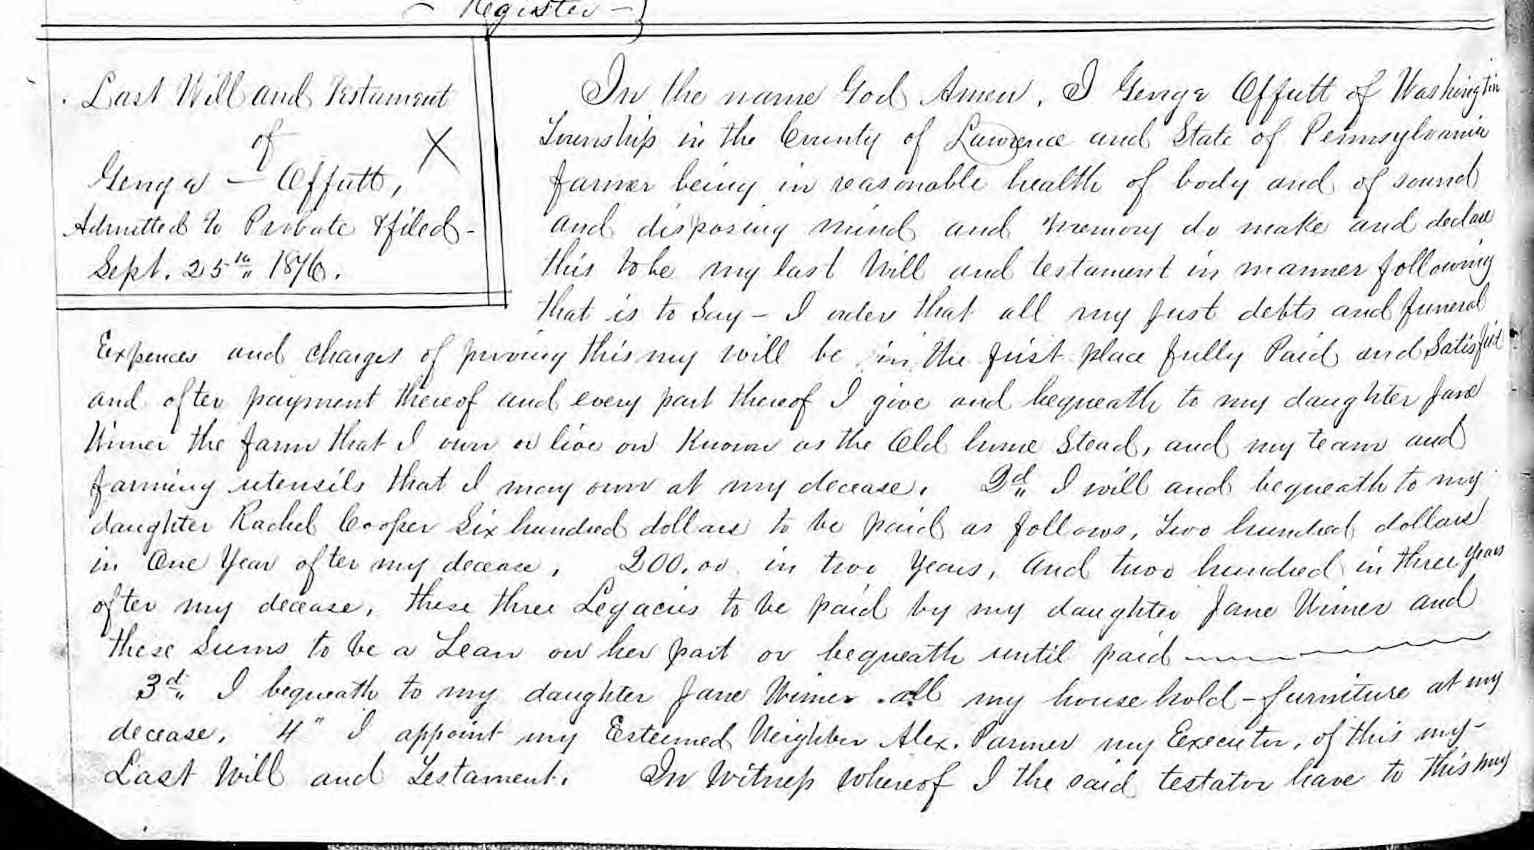 Register
Last Will and Testament
of
George Offutt,
Admitted to Probate & filed
Sept. 25th 1876.
In the name God Amen. I George Offutt of Washington
Township in the County of Lawrence and State of Pennsylvania
farmer being in reasonable health of body and of sound
and disposing mind and memory do make and declare
this to be my last Will and testament in manner following
that is to Say – I order that all my just debts and funeral
Expences and charges of proving this my will be in the first place fully Paid and Satisfied
and after payment thereof and every part thereof I give and bequeath to my daughter Jane
Wimer the farm that I own or live on Known as the Old home Stead, and my team and
farming utensils that I may own at my decease. 2d I will and bequeath to my
daughter Rachel Cooper Six hundred dollars to be paid as follows, Two hundred dollars
in One Year after my decease, 200.00 in two Years, And two hundred in three Years
after my decease, these three Legacies to be paid by my daughter Jane Wimer and
these Sums to be a Lean on her part or bequeath until paid
3d I bequeath to my daughter Jane Wimer all my house hold-furniture at my
decease. 4" I appoint my Esteemed Neighbor Alex. my Executor, of this my-
Last Will and Testament. In Witness Whereof I the said testator have to this my